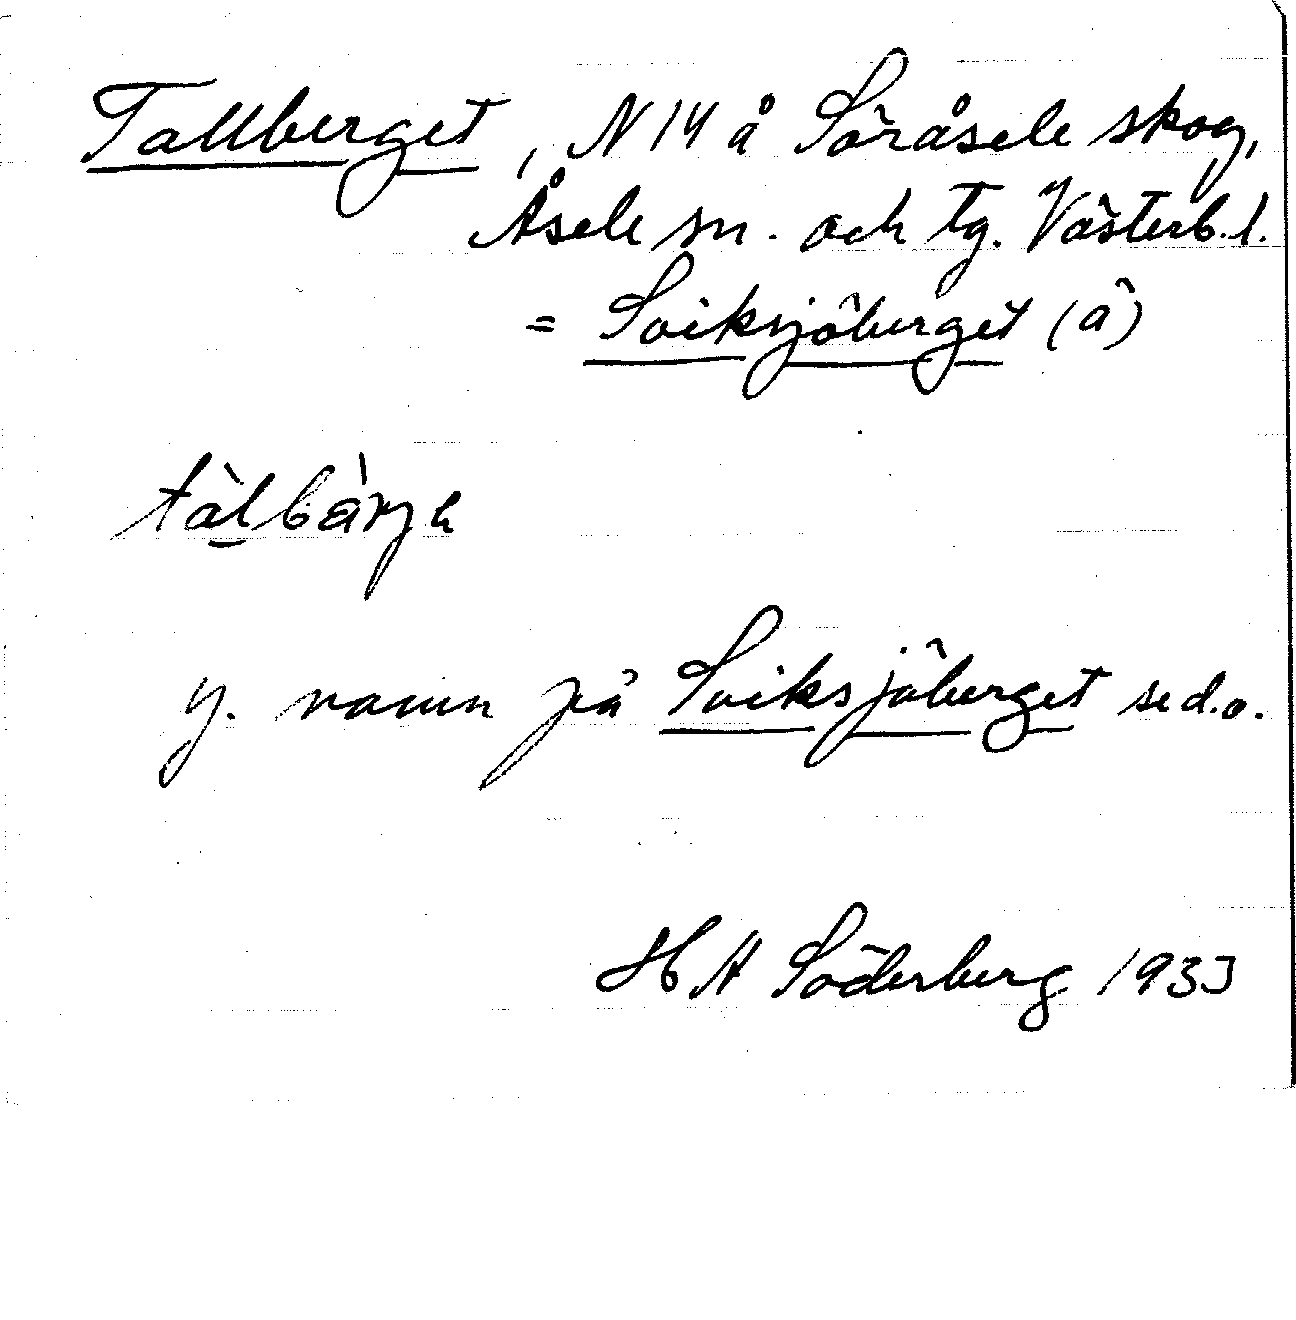 Tallberget, N 14 å Söråsele skog,
Åsele sn. och tg. Västerb. l.
= Sviksjöberget (ä)
tàlbàrjɐ
y. namn på Sviksjöberget se d.o.
H A Söderberg 1933